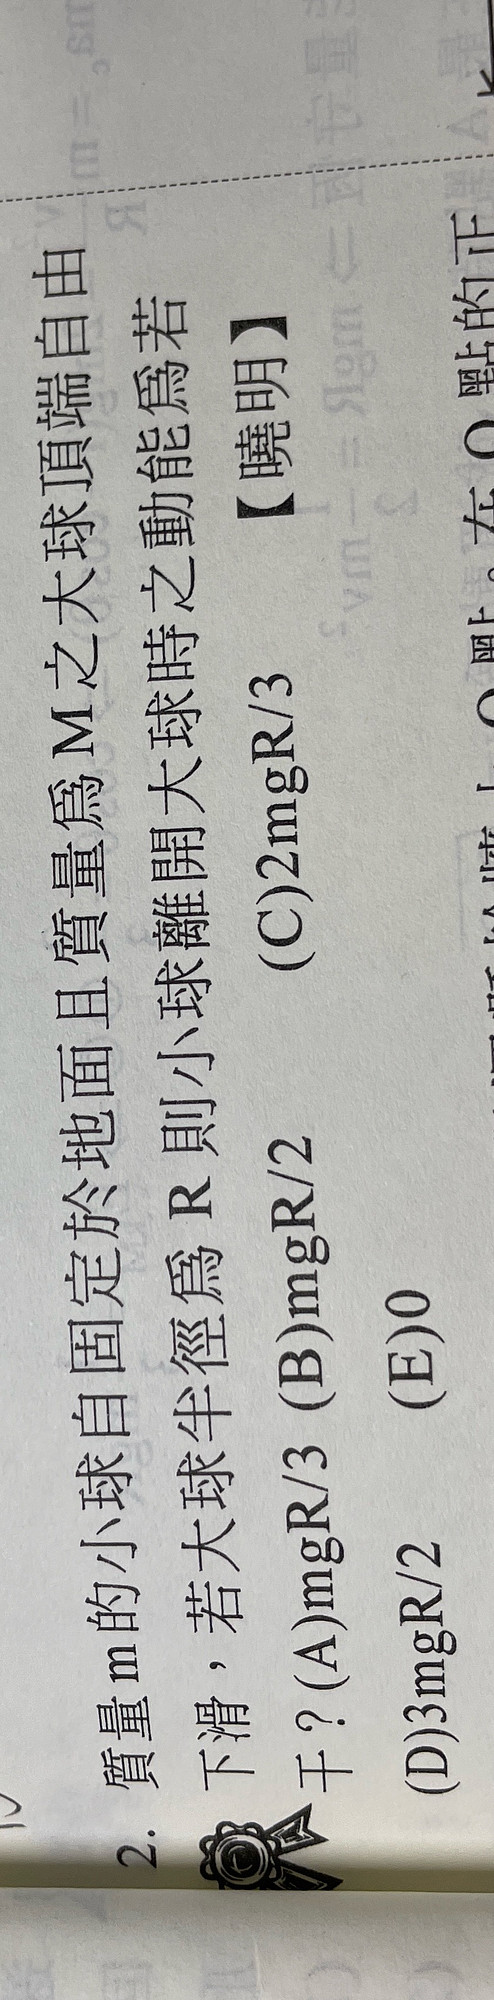 2. 質量m的小球自固定於地面且質量爲M之大球頂端自由
下滑，若大球半徑爲 R 則小球離開大球時之動能爲若
干？(A)mgR/3 (B)mgR/2 (C)2mgR/3 【曉明】
(D)3mgR/2 (E)0
O 點。在 O 點的正